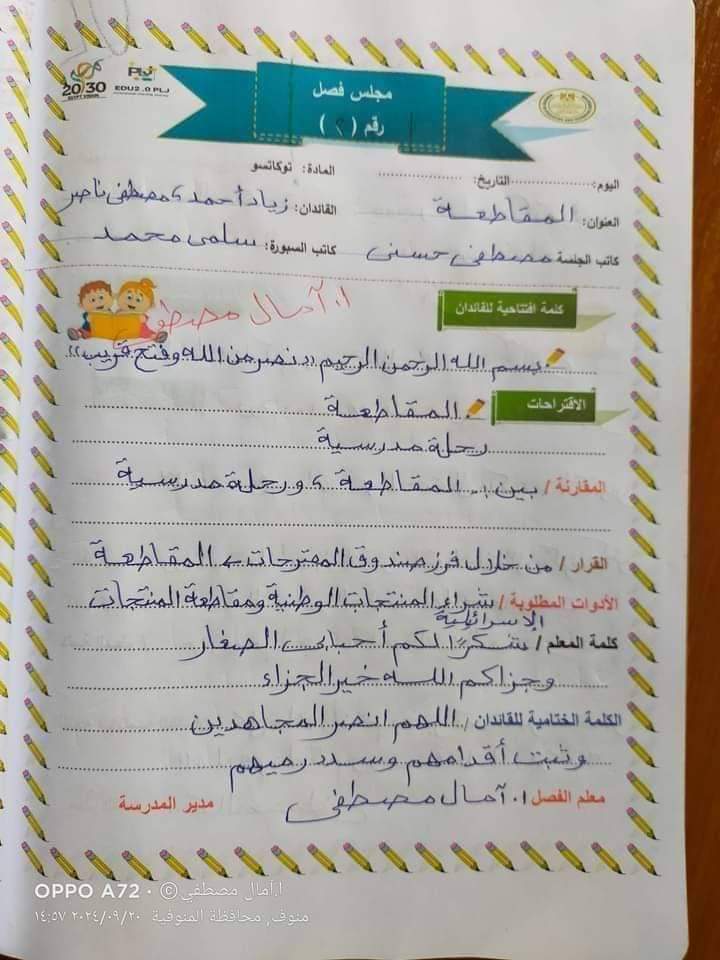 2030
EGYPT VISION
PLJ
EDU2.0 PLJ
مجلس فصل
رقم (٢)
اليوم: التاريخ: المادة: توكاتسو
العنوان: المقاطعة القائدان: زياد أحمد، مصطفى ناصر
كاتب الجلسة مصطفى حسنى كاتب السبورة: سلمى محمد
ا. آمال مصطفى
كلمة افتتاحية للقائدان
بسم الله الرحمن الرحيم (( نصر من الله وفتح قريب ))
الاقتراحات
المقاطعة
رحلة مدرسية
المقارنة / بين : المقاطعة ، ورحلة مدرسية
القرار / من خلال فرز صندوق المقترحات ← المقاطعة
الأدوات المطلوبة / شراء المنتجات الوطنية ومقاطعة المنتجات
الإسرائيلية
كلمة المعلم / شكرًا لكم أحبابى الصغار
وجزاكم الله خير الجزاء
الكلمة الختامية للقائدان / اللهم انصر المجاهدين
وثبت أقدامهم وسدد رميهم
معلم الفصل ا. آمال مصطفى مدير المدرسة
OPPO A72 · © ا.آمال مصطفي
منوف, محافظة المنوفية ٢٠٢٤/٠٩/٢٠ ١٤:٥٧